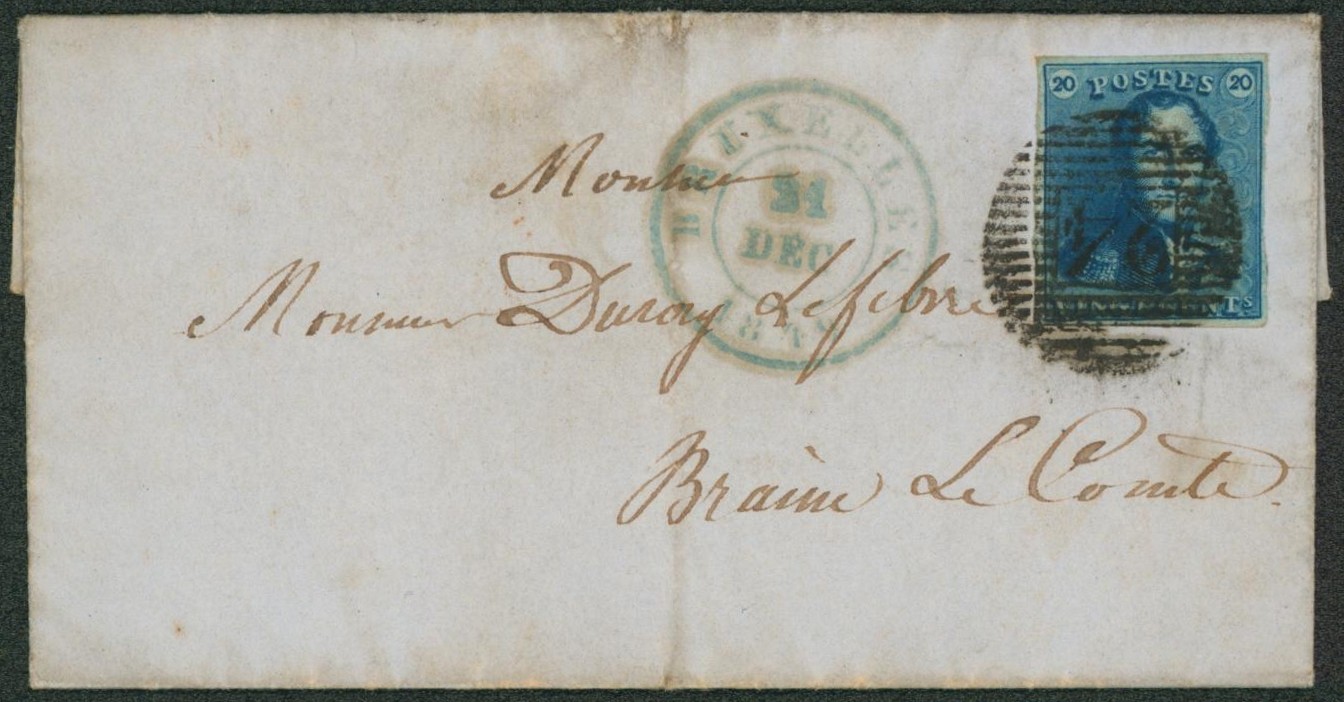 20 POSTES 20
BRUXELLES
Monsieur
21
DEC
Monsieur Duray Lefebvre
24
VINGT CENTS
Braine Le Comte